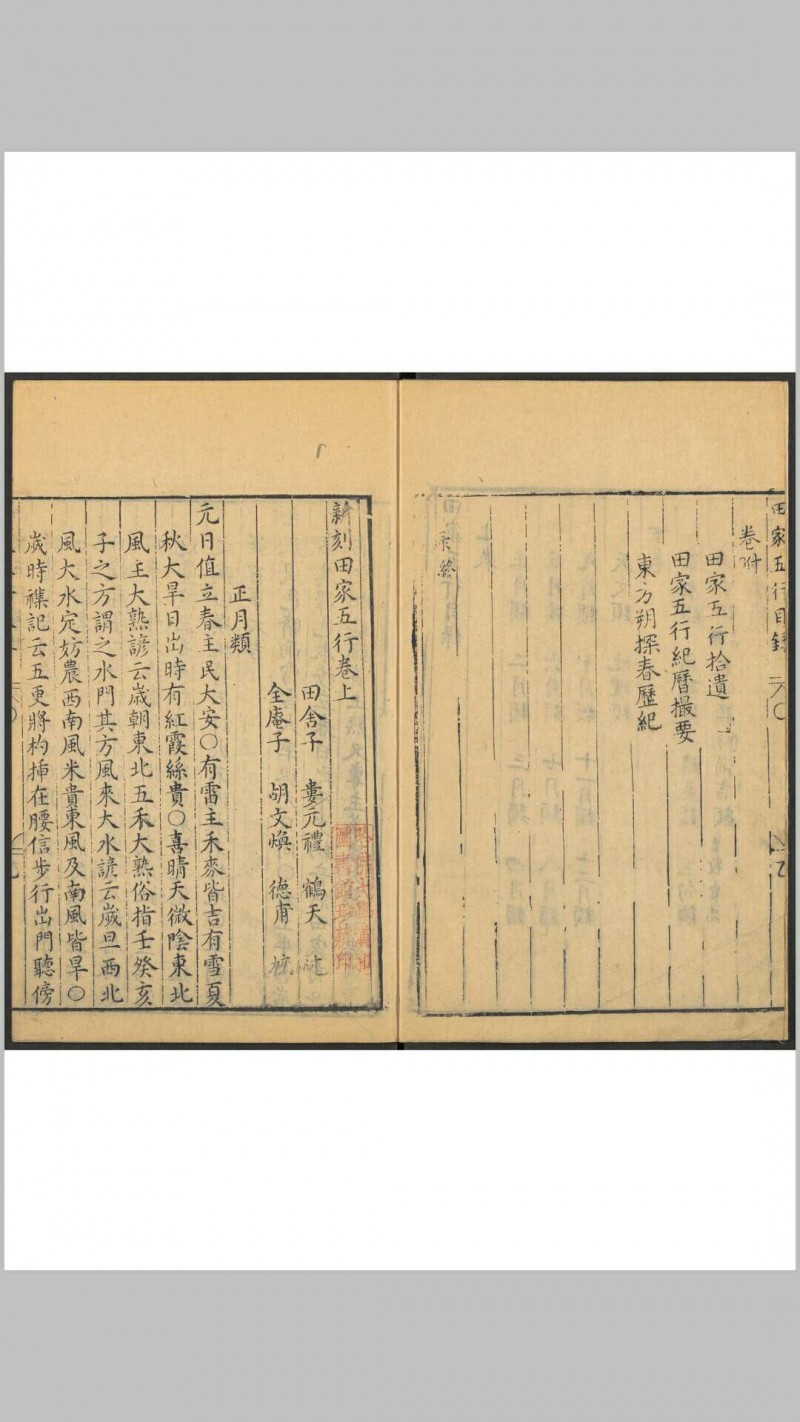 田家五行目錄
卷附
田家五行拾遺
田家五行紀曆撮要
東方朔探春歷紀
新刻田家五行卷上
田舍子 婁元禮 鶴天 述
全庵子 胡文煥 德甫 校
正月類
元日值立春主民大安〇有雷主禾麥皆吉有雪夏
秋大旱日出時有紅霞絲貴〇喜晴天微陰東北
風主大熟諺云歲朝東北五禾大熟俗指壬癸亥
子之方謂之水門其方風來大水諺云歲旦西北
風大水定妨農西南風米貴東風及南風皆旱〇
歲時襍記云五更將杓揷在腰信步行出門聽傍